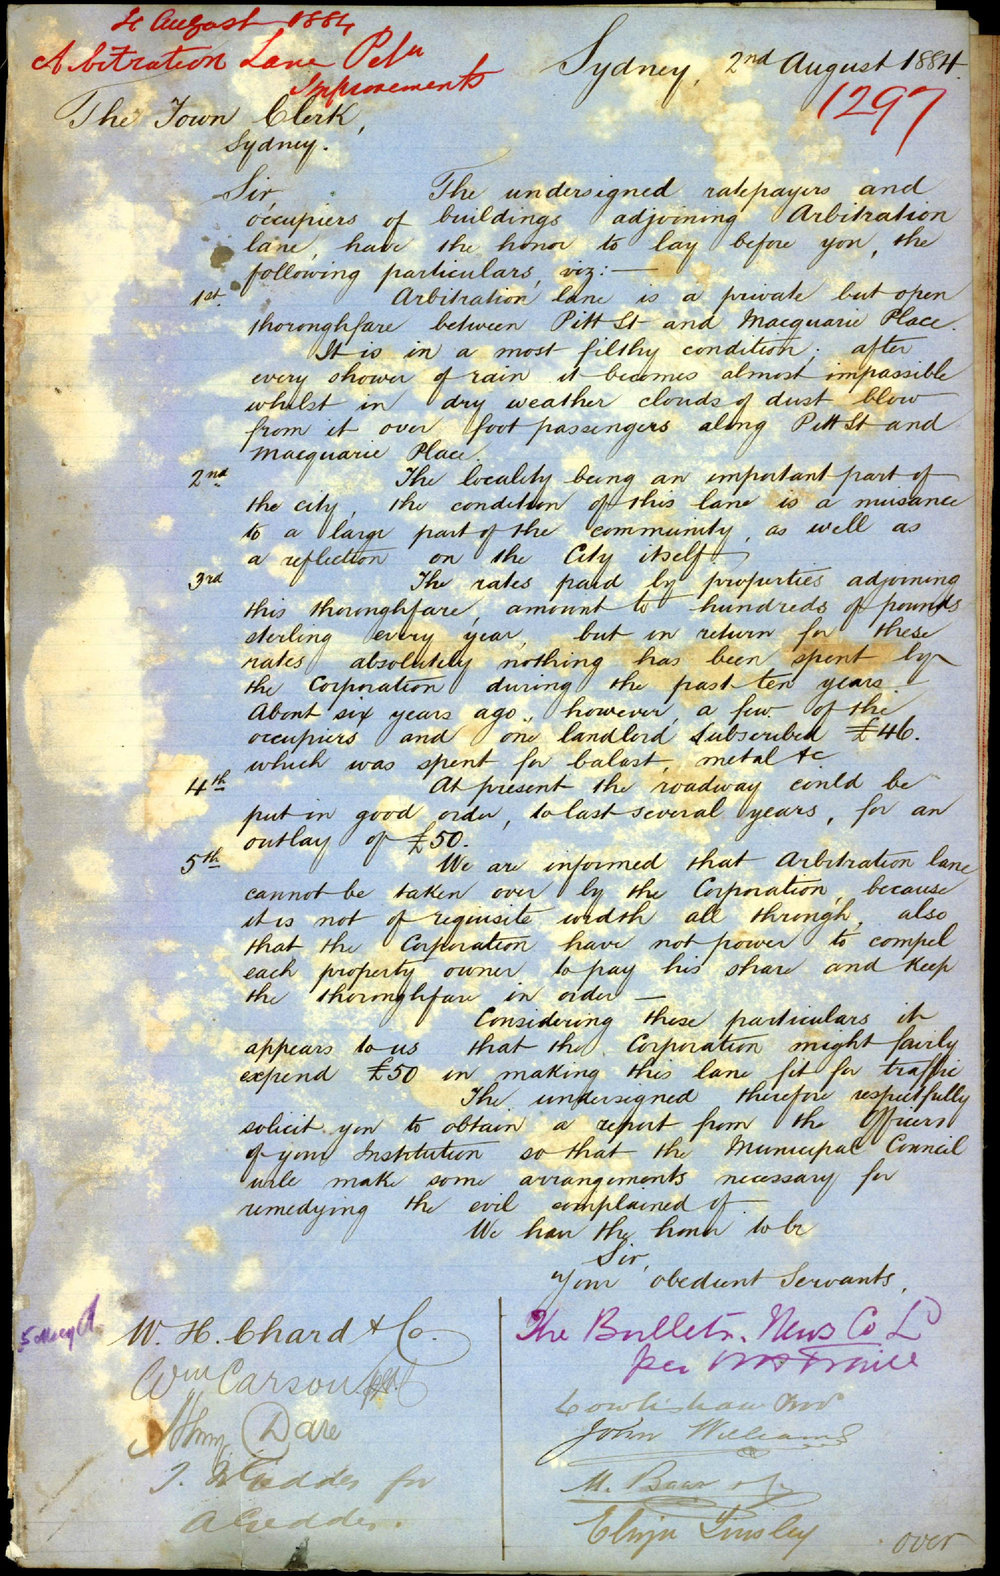 4 August 1884
Arbitration Lane Petn
Improvements
Sydney, 2nd August 1884.
1297
The Town Clerk,
Sydney.
Sir, The undersigned ratepayers and
occupiers of buildings adjoining Arbitration
lane, have the honor to lay before you, the
following particulars, viz:—
1st. Arbitration lane is a private but open
thoroughfare between Pitt St and Macquarie Place.
It is in a most filthy condition; after
every shower of rain it becomes almost impassible
whilst in dry weather clouds of dust blow
from it over foot passengers along Pitt St and
Macquarie Place.
2nd The locality being an important part of
the city, the condition of this lane is a nuisance
to a large part of the community, as well as
a reflection on the City itself.
3rd The rates paid by properties adjoining
this thoroughfare, amount to hundreds of pounds
sterling every year, but in return for these
rates absolutely nothing has been spent by
the Corporation during the past ten years.
About six years ago, however, a few of the
occupiers and one landlord subscribed £46.
which was spent for balast, metal &c
4th At present the roadway could be
put in good order, to last several years, for an
outlay of £50.
5th We are informed that Arbitration lane
cannot be taken over by the Corporation, because
it is not of requisite width all through, also
that the Corporation have not power to compel
each property owner to pay his share and keep
the thoroughfare in order —
Considering these particulars it
appears to us that the Corporation might fairly
expend £50 in making this lane fit for traffic
The undersigned therefore respectfully
solicit you to obtain a report from the Officers
of your Institution so that the Municipal Council
will make some arrangements necessary for
remedying the evil complained of.
We have the honor to be
Sir,
Your obedient Servants,
W. H. Chard & Co.
Wm Carson
Dare
T. Geddes for
A Geddes.
The Bulletin News Co Ld
per
John Williams
M.
Eliju Tinsley
over